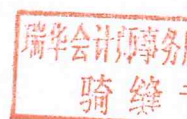 瑞华会计师事务
骑缝